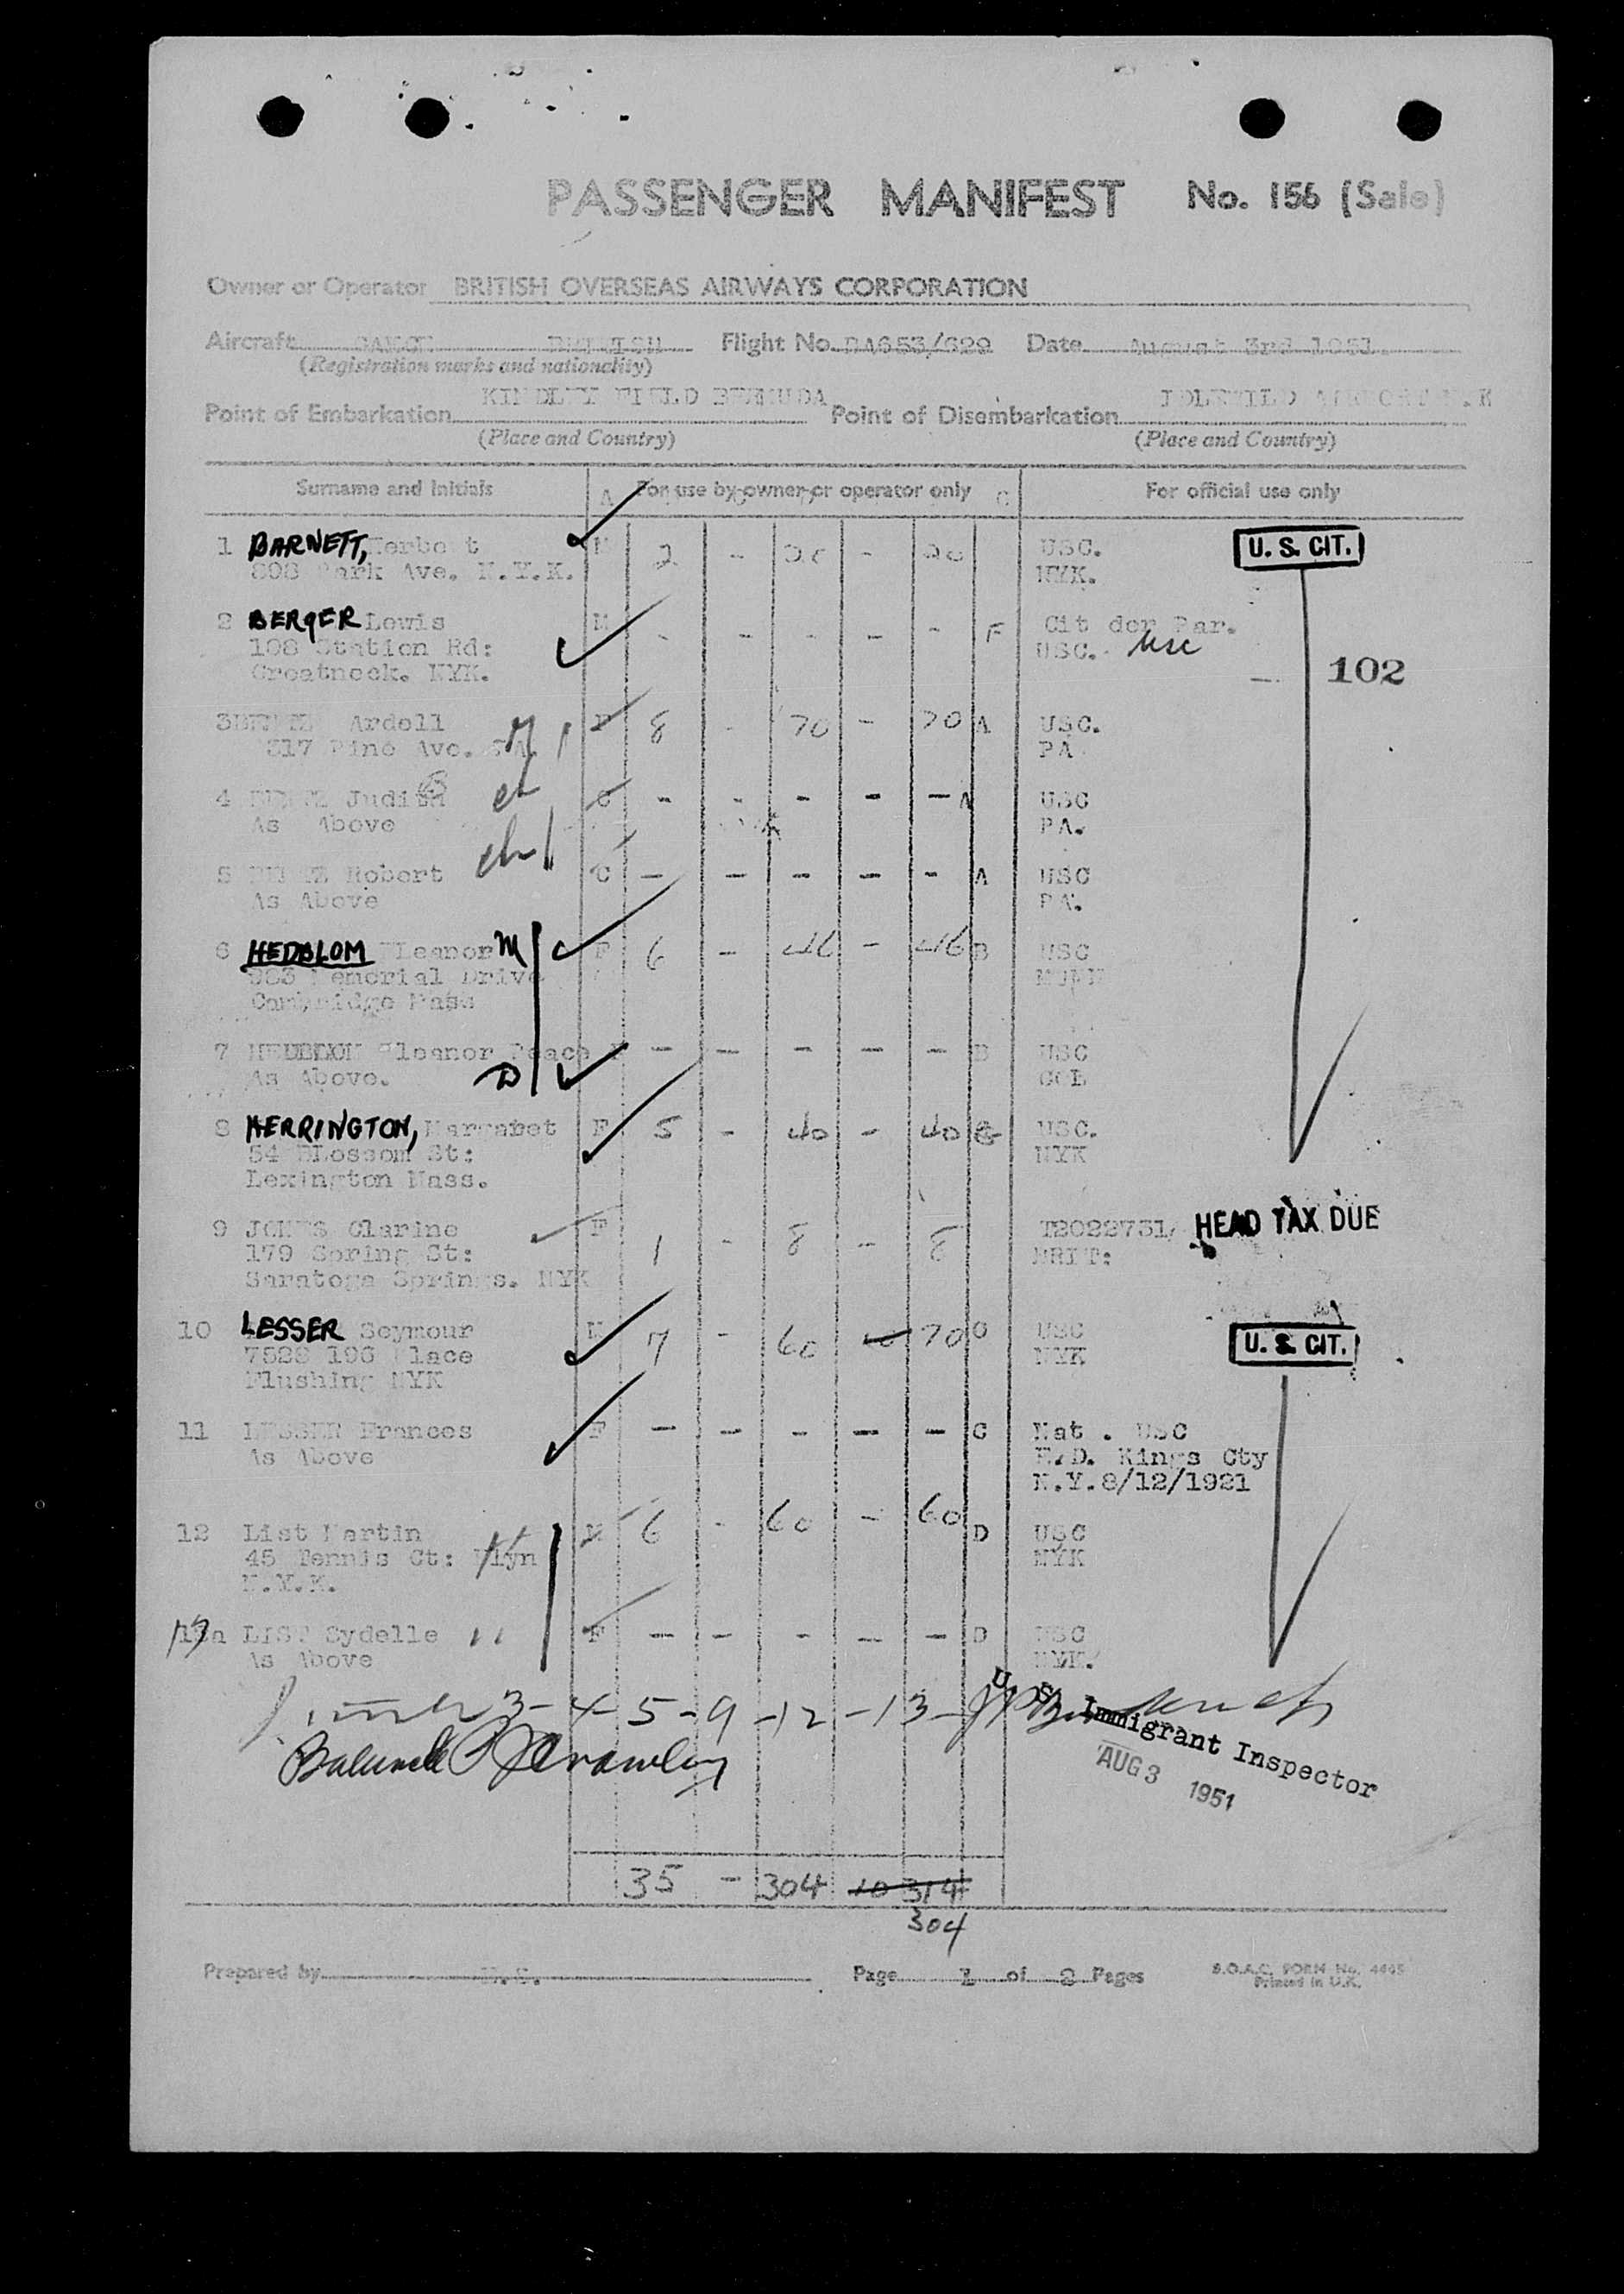 PASSENGER MANIFEST No. 156 (Sale)
Owner or Operator BRITISH OVERSEAS AIRWAYS CORPORATION
Aircraft BRITISH Flight No. BA653/629 Date August 3rd 1951.
(Registration marks and nationality)
Point of Embarkation KINDLEY FIELD BERMUDA Point of Disembarkation IDLEWILD AIRPORT N.K
(Place and Country) (Place and Country)
Surname and Initials A For use by owner or operator only C For official use only
1 BARNETT, Herbert M 2 - 20 - 20 USC. U. S. CIT.
898 Park Ave. N.Y.K. NYK.
2 BERGER Lewis M - - - - - F Cit der Par.
108 Station Rd: USC. usc
Greatneck. NYK. 102
3 Ardell F 8 - 70 - 70 A USC.
317 Pine Ave. PA
4 Judith C - - - - - A USC
As Above PA.
5 Robert C - - - - - A USC
As Above PA.
6 HEDBLOM Eleanor M F 6 - 46 - 46 B USC
983 Memorial Drive
Cambridge Mass
7 Eleanor Peace F - - - - - B USC
As Above. D COL
8 HERRINGTON, Margaret F 5 - 40 - 40 USC.
54 BLossom St: NYK
Lexington Mass.
9 JONES Clarine F 1 - 8 - 8 T2022731 HEAD TAX DUE
179 Spring St: BRIT:
Saratoga Springs. NYK
10 LESSER Seymour M 7 - 60 10 70 C USC U. S. CIT.
7528 196 Place NYK
Flushing NYK
11 LESSER Frances F - - - - - C Nat . USC
As Above E.D. Kings Cty
N.Y. 8/12/1921
12 List Martin M 6 - 60 - 60 D USC
45 Tennis Ct: Blyn NYK
N.Y.K.
13 12a LIST Sydelle F - - - - - D USC
As Above NYK.
3-4-5-9-12-13-
U. S. Immigrant Inspector
AUG 3 1951
35 - 304 10 314
304
Prepared by Page 1 of 2 Pages B.O.A.C. FORM No. 4465
Printed in U.K.